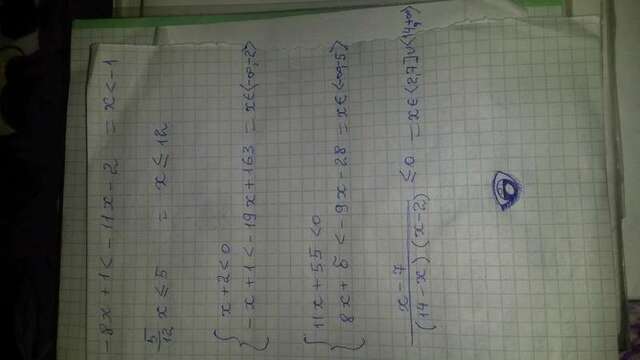 -8x + 1 < -11x - 2 = x < -1
5/12 x ≤ 5 = x ≤ 12
{ x + 2 < 0
-x + 1 < -19x + 163 = x ∈ (-∞; -2)
{ 11x + 55 < 0
8x + 6 < -9x - 28 = x ∈ (-∞; -5)
x - 7 / (14 - x)(x - 2) ≤ 0 = x ∈ (2, 7] ∪ (14, +∞)